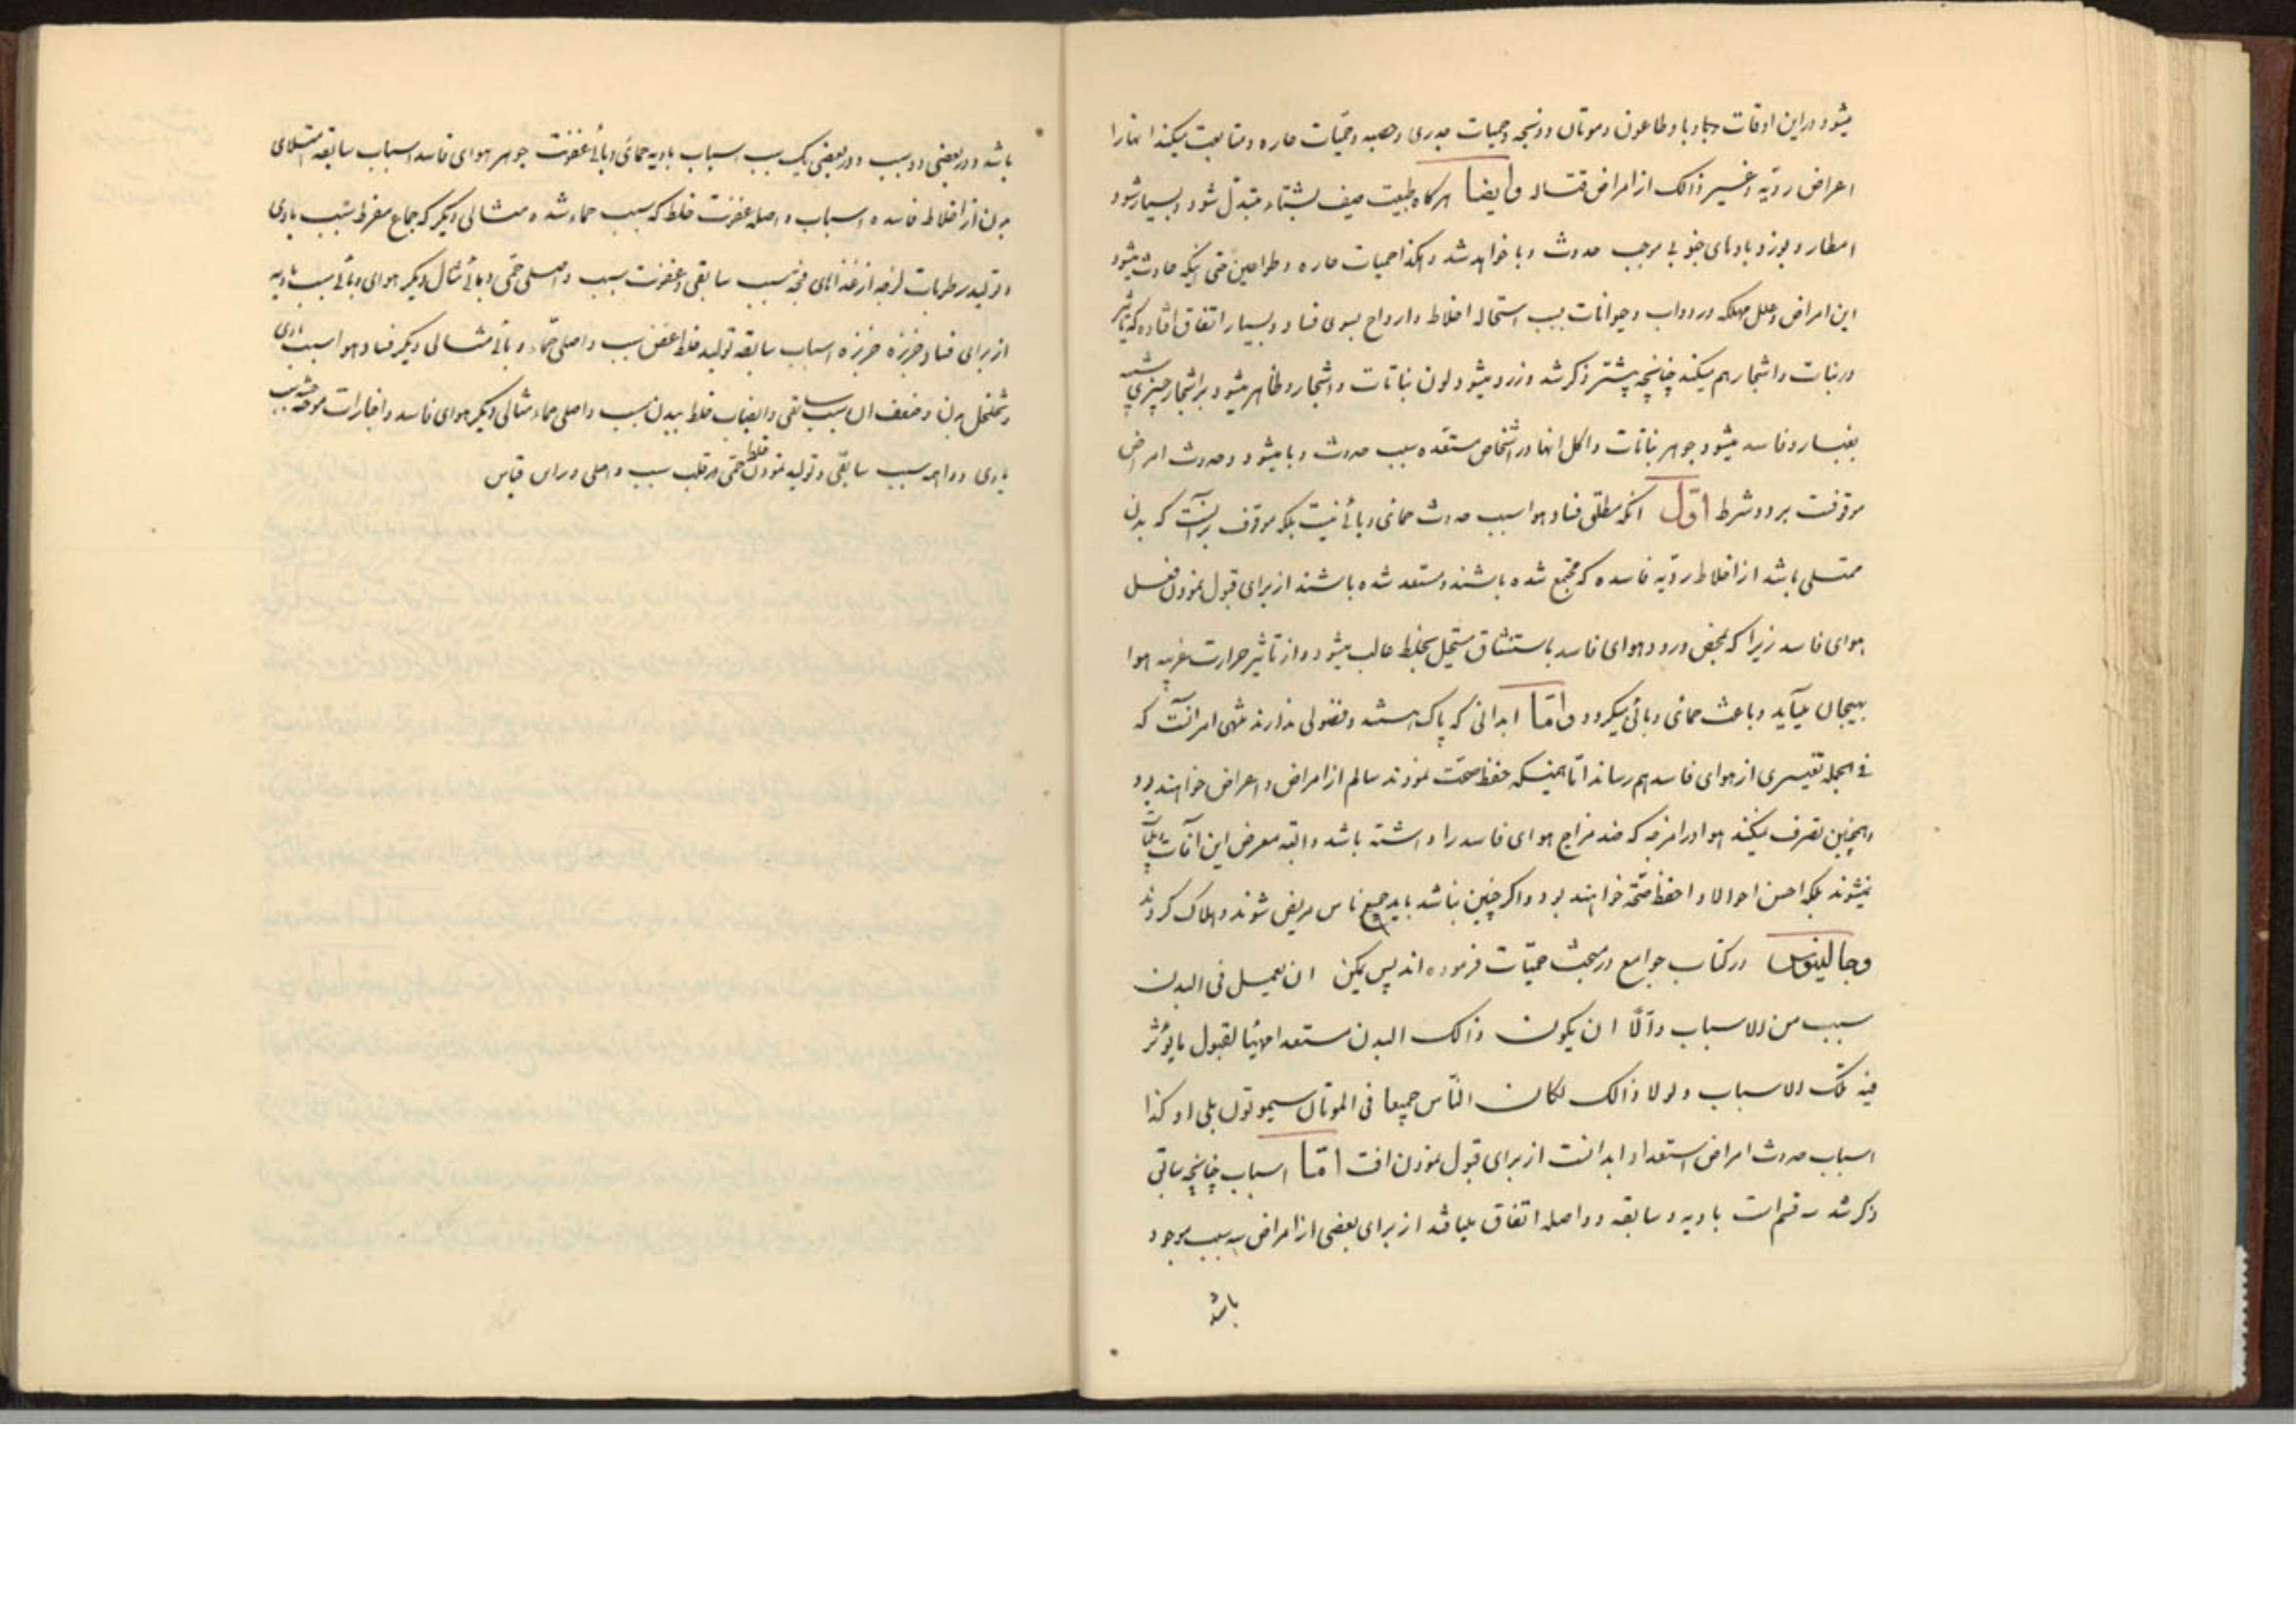 میشود در این اوقات وبا و طاعون و موتان و ذبحه و حمیات جدری و حصبه و حمّیات حاره و متابعت میکند انها را
اعراض ردّیه و غیر ذالک از امراض قتاله وایضا هرکاه طبیعت صیف بشتاء متبدّل شود و بسیار شود
امطار و بوزد بادهای جنوبی موجب حدوث وبا خواهد شد و هکذا حمیات حاره و طواعین حتی اینکه حادث میشود
این امراض و علل مهلکه در دواب و حیوانات بسبب استحاله اخلاط و ارواح بسوی فساد و بسیار اتفاق افتاده که تاثیر
در نبات و اشجار هم میکند چنانچه پیشتر ذکر شد و زرد میشود لون نباتات و اشجار و ظاهر میشود بر اشجار چیزی شبیه
بغبار و فاسد میشود جوهر نباتات و اکل انها در اشخاص مستعده سبب حدوث وبا میشود و حدوث امراض
موقوفت بر دو شرط اوّل انکه مطلق فساد هوا سبب حدوث حمای وبائی نیست بلکه موقوف برانست که بدن
ممتلی باشد از اخلاط ردّیه فاسده که مجتمع شده باشند و مستعد شده باشند از برای قبول نمودن فعل
هوای فاسد زیرا که بمحض ورود هوای فاسد باستنشاق مستحیل بخلط غالب میشود و از تاثیر حرارت غریبه هوا
بهیجان میآید و باعث حمای وبائی میکردد وامّا ابدانی که پاک هستند و فضولی ندارند منتهی امر انست که
فی الجمله تغییری از هوای فاسد بهم رساند امّا همینکه حفظ صحّت نمودند سالم از امراض و اعراض خواهند بود
و همچنین تصرف میکند هوا در امزجه که ضد مزاج هوای فاسد را داشته باشد و البته معرض این آفات و بلیّات
نمیشوند بلکه احسن احوالا و احفظ صحّة خواهند بود و اکر چنین نباشد باید جمیع ناس مریض شوند و هلاک کردند
وجالینوس در کتاب جوامع در مبحث حمیّات فرموده اند لیس یمکن ان یعمل فی البدن
سبب من الاسباب والّا ان یکون ذالک البدن مستعدا مهیّئا لقبول ما یؤثر
فیه تلک الاسباب و لولا ذالک لکان النّاس جمیعا فی الموتان سیموتون بلی او کذا
اسباب حدوث امراض استعداد ابدانست از برای قبول نمودن افت امّا اسباب چنانچه سابق
ذکر شد سه قسم است بادیه و سابقه و واصله اتفاق میافتد از برای بعضی از امراض سه سبب موجود
باشد
باشد و در بعضی دو سبب و در بعضی یک سبب اسباب بادیه حمای وبائی عفونت جوهر هوای فاسد اسباب سابقه امتلای
بدن از اخلاط فاسده و اسباب واصله عفونت خلط که سبب حماء شده مثالی دیگر که جماع مفرط سبب بادی
و تولید رطوبات لزجه از غذاهای فجّه سبب سابقی و عفونت سبب واصلی حمّی وبائی مثال دیکر هوای وبائی سبب بادیه
از برای فساد خربزه خربزه اسباب سابقه تولید خلط عفن سبب واصلی حمّاء وبائی مثالی دیکر فساد هوا سبب بادی
و تخلخل بدن و ضعف ان سبب سابقی و انصباب خلط ببدن سبب واصلی حماء مثالی دیکر هوای فاسد و اخبارات موحشه سبب
بادی و واهمه سبب سابقی و تولید نمودن خلط حمّی در قلب سبب واصلی و برای قیاس